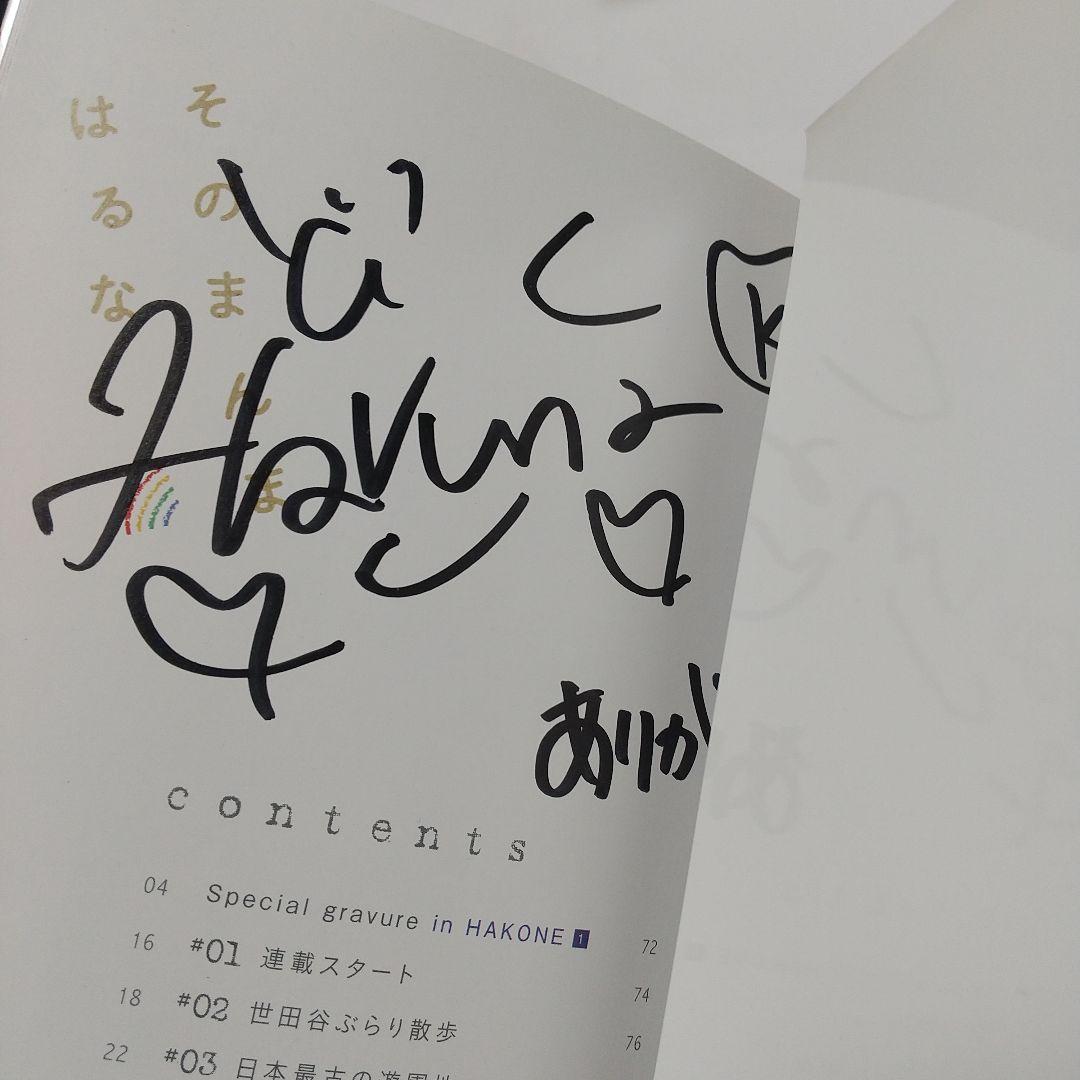 そのまんま
はるな
Haruna
K
ありが
contents
04 Special gravure in HAKONE 1
16 #01 連載スタート
18 #02 世田谷ぶらり散歩
22 #03 日本最古の遊園地
72
74
76